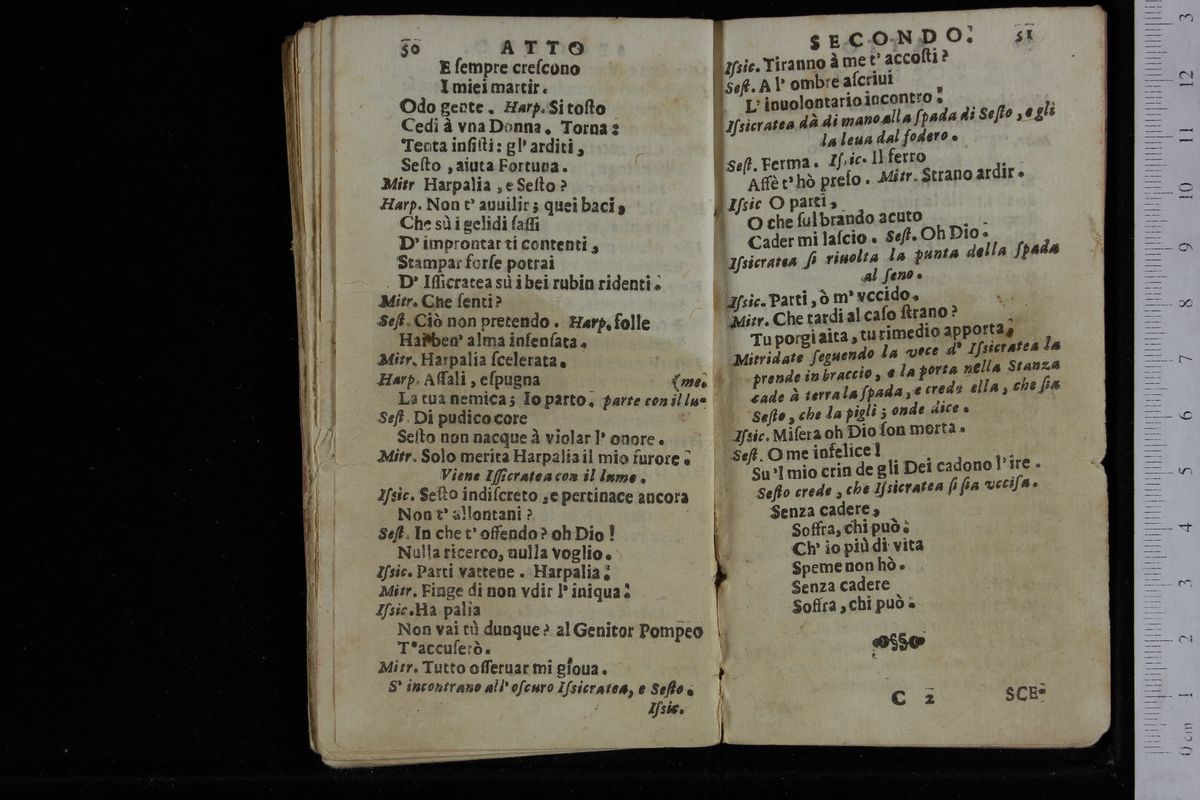 50 ATTO
E ſempre creſcono
I miei martir.
Odo gente. Harp. Si toſto
Cedi à vna Donna. Torna:
Tenta inſiſti: gl' arditi,
Seſto, aiuta Fortuna.
Mitr Harpalia, e Seſto?
Harp. Non t' auuilir; quei baci,
Che sù i gelidi ſaſſi
D' improntar ti contenti,
Stampar forſe potrai
D' Iſſicratea sù i bei rubin ridenti.
Mitr. Che ſenti?
Seſt. Ciò non pretendo. Harp. folle
Hai ben' alma inſenſata.
Mitr. Harpalia ſcelerata.
Harp. Aſſali, eſpugna (me.
La tua nemica; Io parto. parte con il lu-
Seſt. Di pudico core
Seſto non nacque à violar l' onore.
Mitr. Solo merita Harpalia il mio furore.
Viene Iſſicratea con il lume.
Iſsic. Seſto indiſcreto, e pertinace ancora
Non t' allontani?
Seſt. In che t' offendo? oh Dio!
Nulla ricerco, nulla voglio.
Iſsic. Parti vattene. Harpalia:
Mitr. Finge di non vdir l' iniqua:
Iſsic. Ha palia
Non vai tù dunque? al Genitor Pompeo
T' accuſerò.
Mitr. Tutto oſſeruar mi gioua.
S' incontrano all' oſcuro Iſsicratea, e Seſto.
Iſsic.
SECONDO. 51
Iſsic. Tiranno à me t' accoſti?
Seſt. A l' ombre aſcriui
L' inuolontario incontro.
Iſsicratea dà di mano alla ſpada di Seſto, e gli
la leua dal fodero.
Seſt. Ferma. Iſsic. Il ferro
Affè t' hò preſo. Mitr. Strano ardir.
Iſsic O parti,
O che ſul brando acuto
Cader mi laſcio. Seſt. Oh Dio.
Iſsicratea ſi riuolta la punta della ſpada
al ſeno.
Iſsic. Parti, ò m' vccido.
Mitr. Che tardi al caſo ſtrano?
Tu porgi aita, tu rimedio apporta.
Mitridate ſeguendo la voce d' Iſsicratea la
prende in braccio, e la porta nella Stanza
cade à terra la ſpada, e crede ella, che ſia
Seſto, che la pigli; onde dice.
Iſsic. Miſera oh Dio ſon morta.
Seſt. O me infelice!
Su 'l mio crin de gli Dei cadono l' ire.
Seſto crede, che Iſsicratea ſi ſia vcciſa.
Senza cadere,
Soffra, chi può.
Ch' io più di vita
Speme non hò.
Senza cadere
Soffra, chi può.
C 2 SCE-